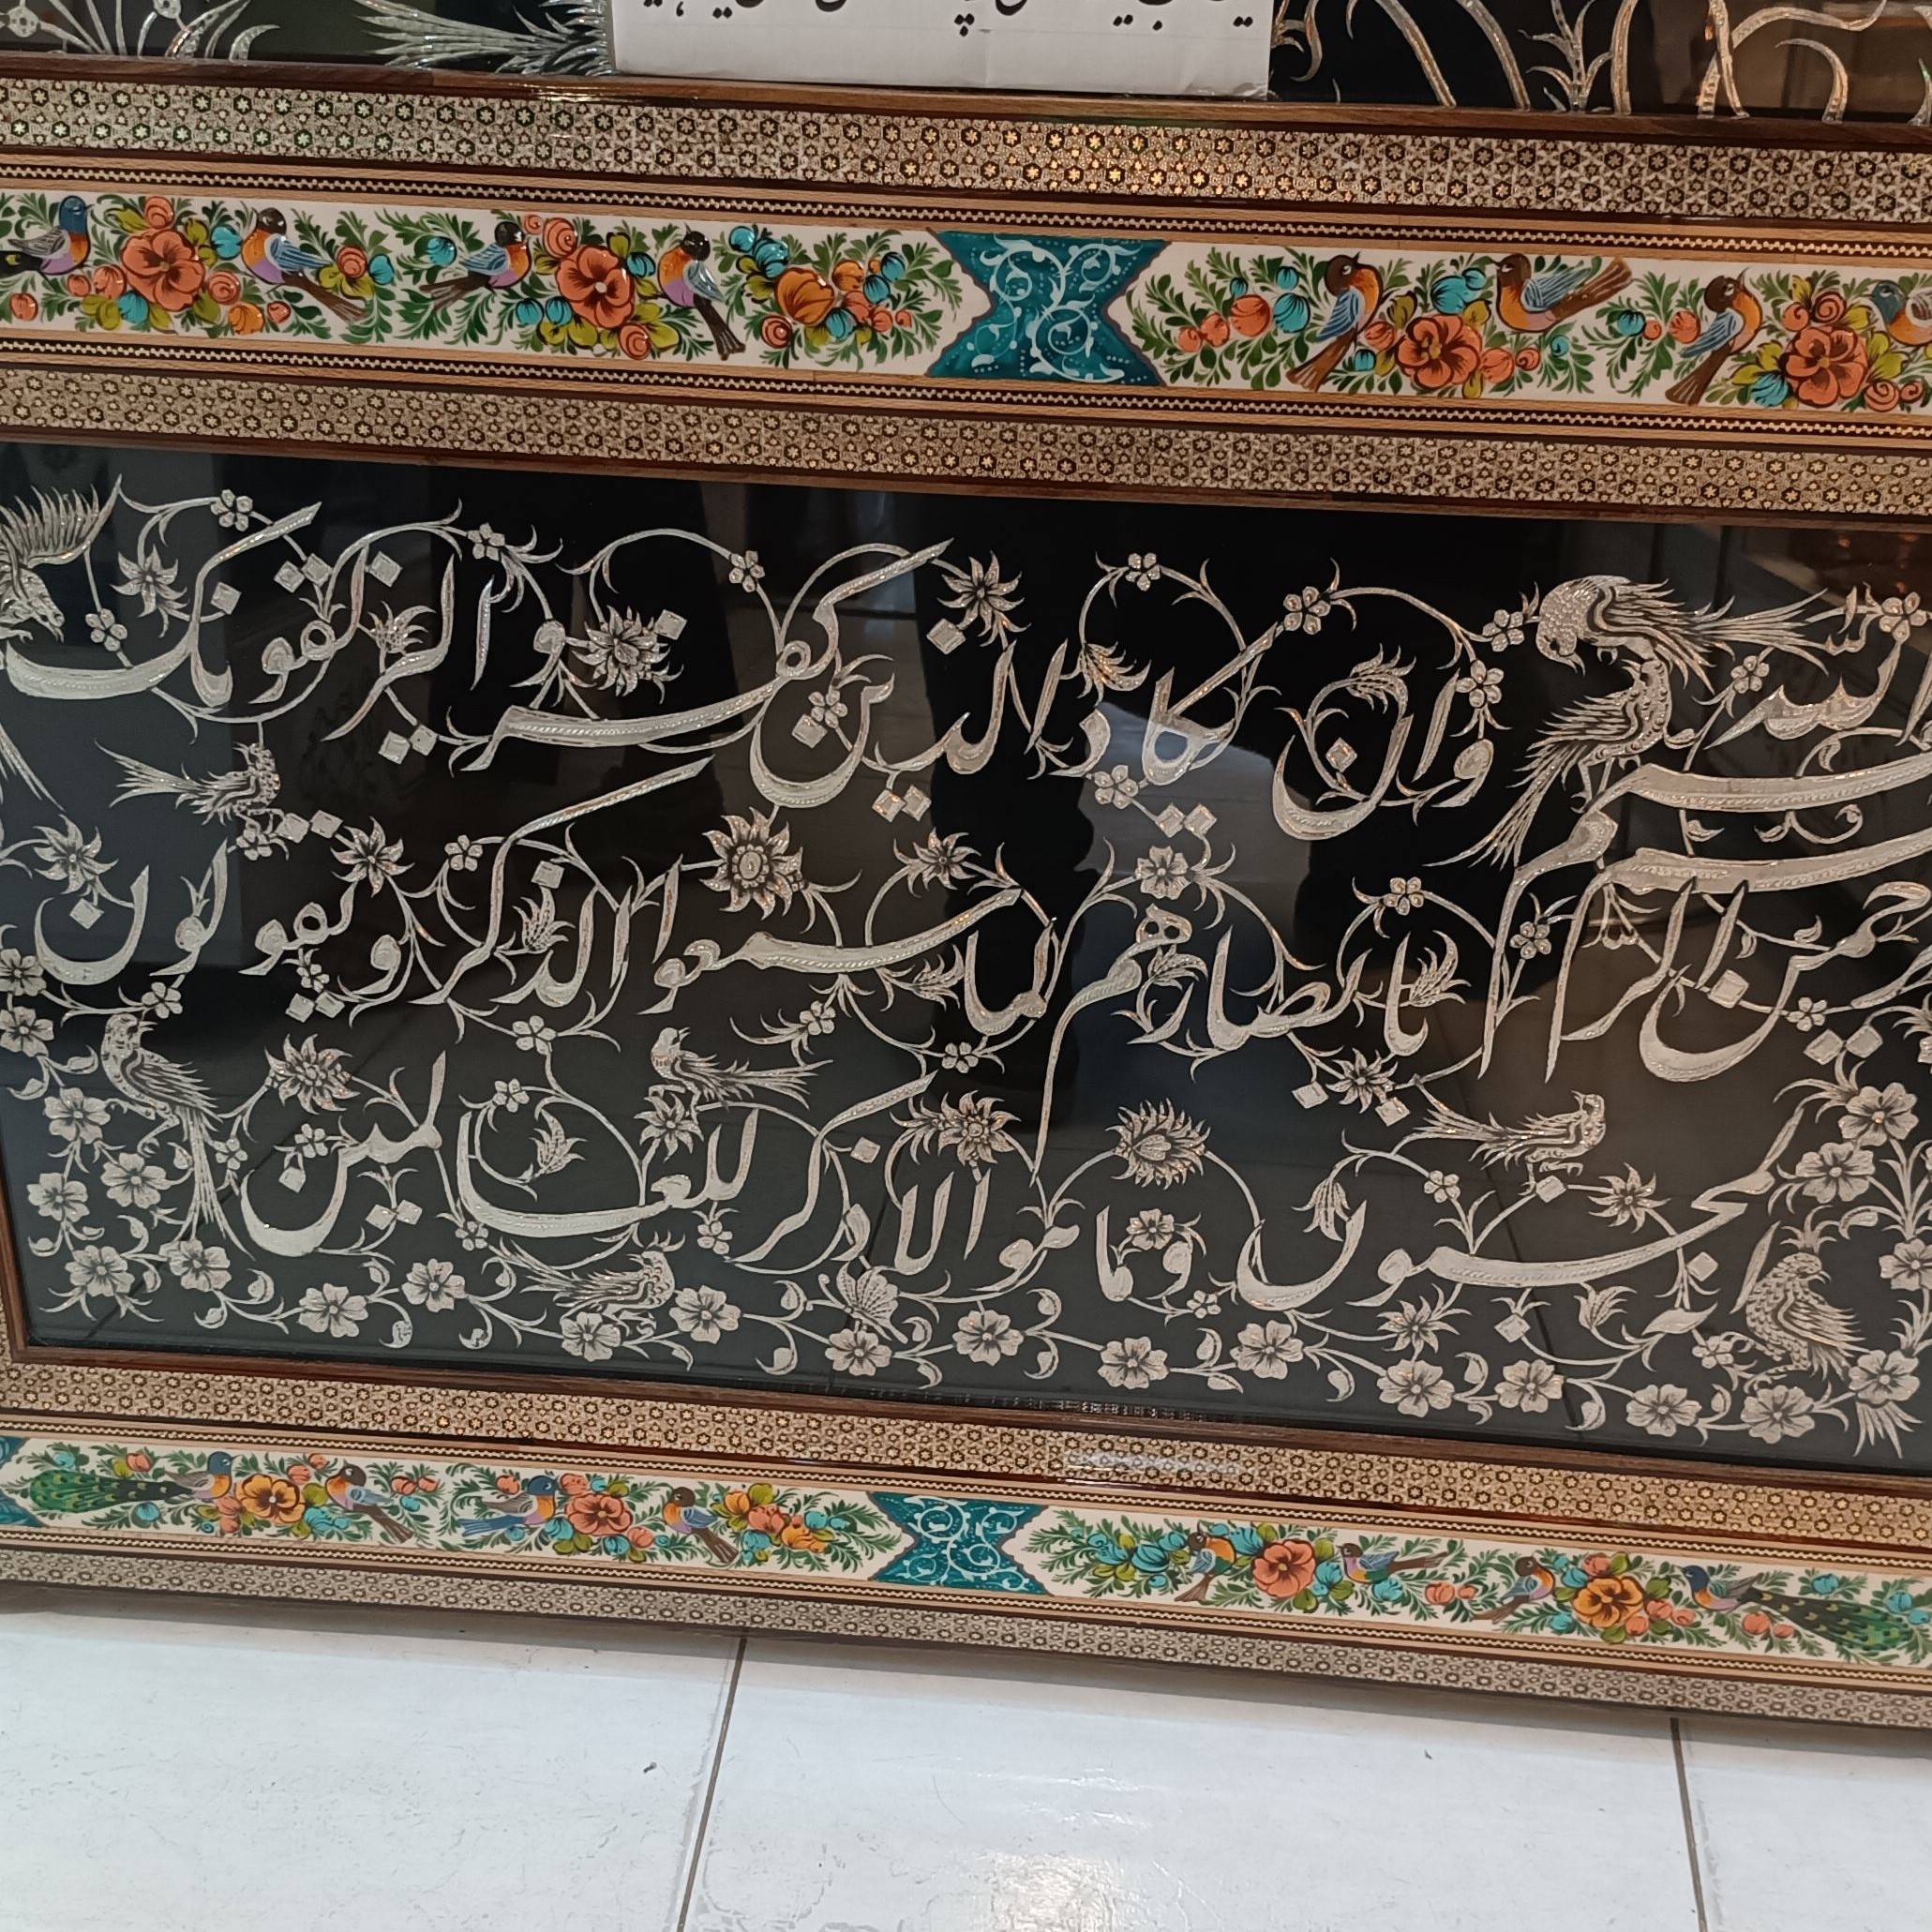 بسم الله الرحمن الرحیم
وان یکاد الذین کفروا لیزلقونک
بابصارهم لما سمعوا الذکر و یقولون
لمجنون وما هو الا ذکر للعالمین